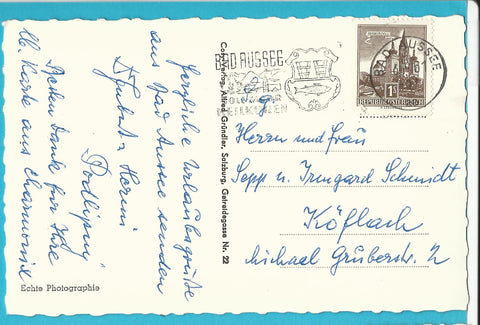 Herzliche Urlaubsgrüße
aus Bad Aussee senden
Hubert u. Hermi
Podlipny
Besten Dank für Ihre
lb. Karte aus Chamonix
Echte Photographie
Cosy-Verlag, Alfred Gründler, Salzburg, Getreidegasse Nr. 22
BAD AUSSEE
HEILQUELLEN
BAD AUSSEE
1S
REPUBLIK ÖSTERREICH
Herrn und Frau
Sepp u. Irmgard Schmidt
Köflach
Michael Gruberstr. 2